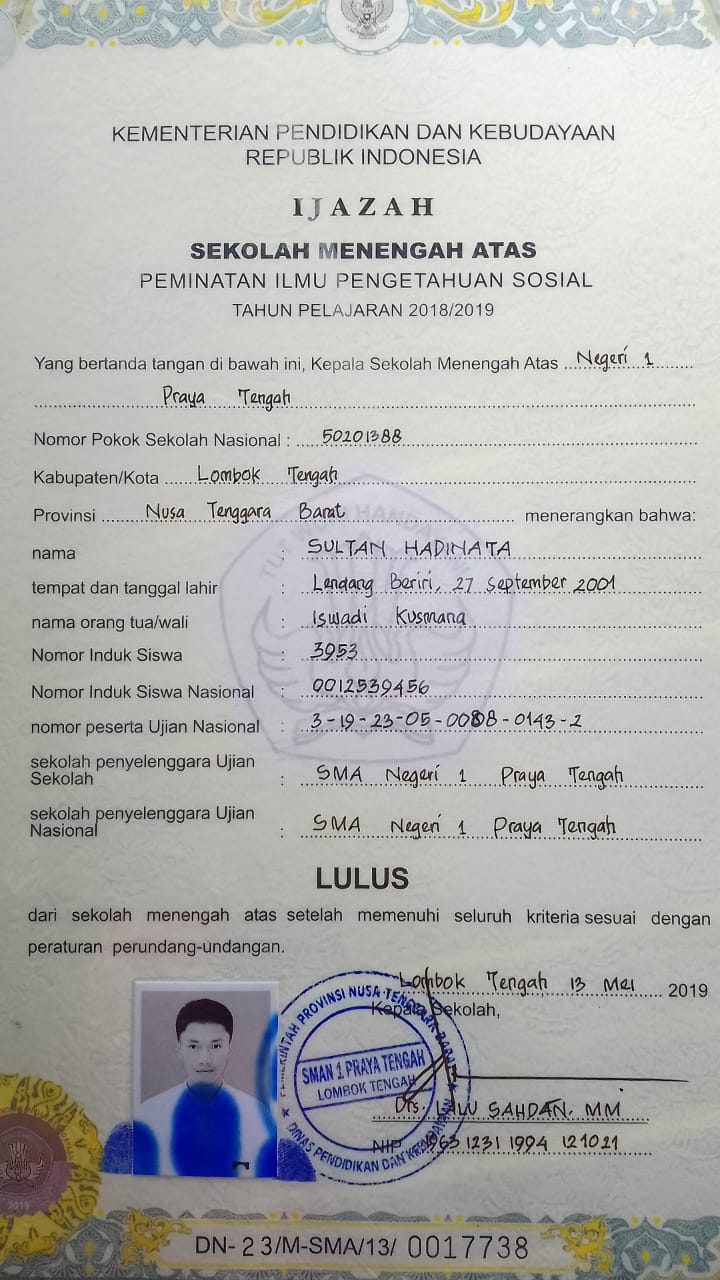 KEMENTERIAN PENDIDIKAN DAN KEBUDAYAAN
REPUBLIK INDONESIA
IJAZAH
SEKOLAH MENENGAH ATAS
PEMINATAN ILMU PENGETAHUAN SOSIAL
TAHUN PELAJARAN 2018/2019
Yang bertanda tangan di bawah ini, Kepala Sekolah Menengah Atas Negeri 1
Praya Tengah
Nomor Pokok Sekolah Nasional : 50201388
Kabupaten/Kota Lombok Tengah
Provinsi Nusa Tenggara Barat menerangkan bahwa:
nama : SULTAN HADINATA
tempat dan tanggal lahir : Lendang Beriri, 27 September 2001
nama orang tua/wali : Iswadi Kusmana
Nomor Induk Siswa : 3953
Nomor Induk Siswa Nasional : 0012539456
nomor peserta Ujian Nasional : 3-19-23-05-0088-0143-2
sekolah penyelenggara Ujian
Sekolah : SMA Negeri 1 Praya Tengah
sekolah penyelenggara Ujian
Nasional : SMA Negeri 1 Praya Tengah
LULUS
dari sekolah menengah atas setelah memenuhi seluruh kriteria sesuai dengan
peraturan perundang-undangan.
Lombok Tengah 13 Mei 2019
Kepala Sekolah,
PEMERINTAH PROVINSI NUSA TENGGARA BARAT
SMAN 1 PRAYA TENGAH
LOMBOK TENGAH
DINAS PENDIDIKAN DAN KEBUDAYAAN
Drs. LALU SAHDAN, MM
NIP 19631231 1994 121021
2019
DN-23/M-SMA/13/ 0017738